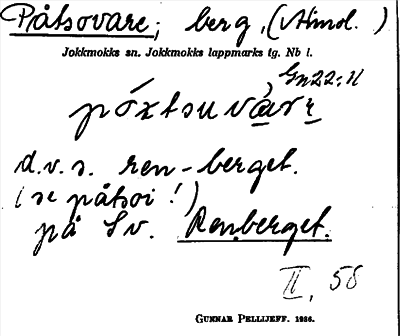 Påtsovare; berg, (Almd. )
Jokkmokks sn. Jokkmokks lappmarks tg. Nb l.
Gn22:11
póxtsuvàrᵋ
d.v.s. ren-berget.
(se påtsoi!)
på Sv. Renberget.
II, 58
GUNNAR PELLIJEFF. 1936.